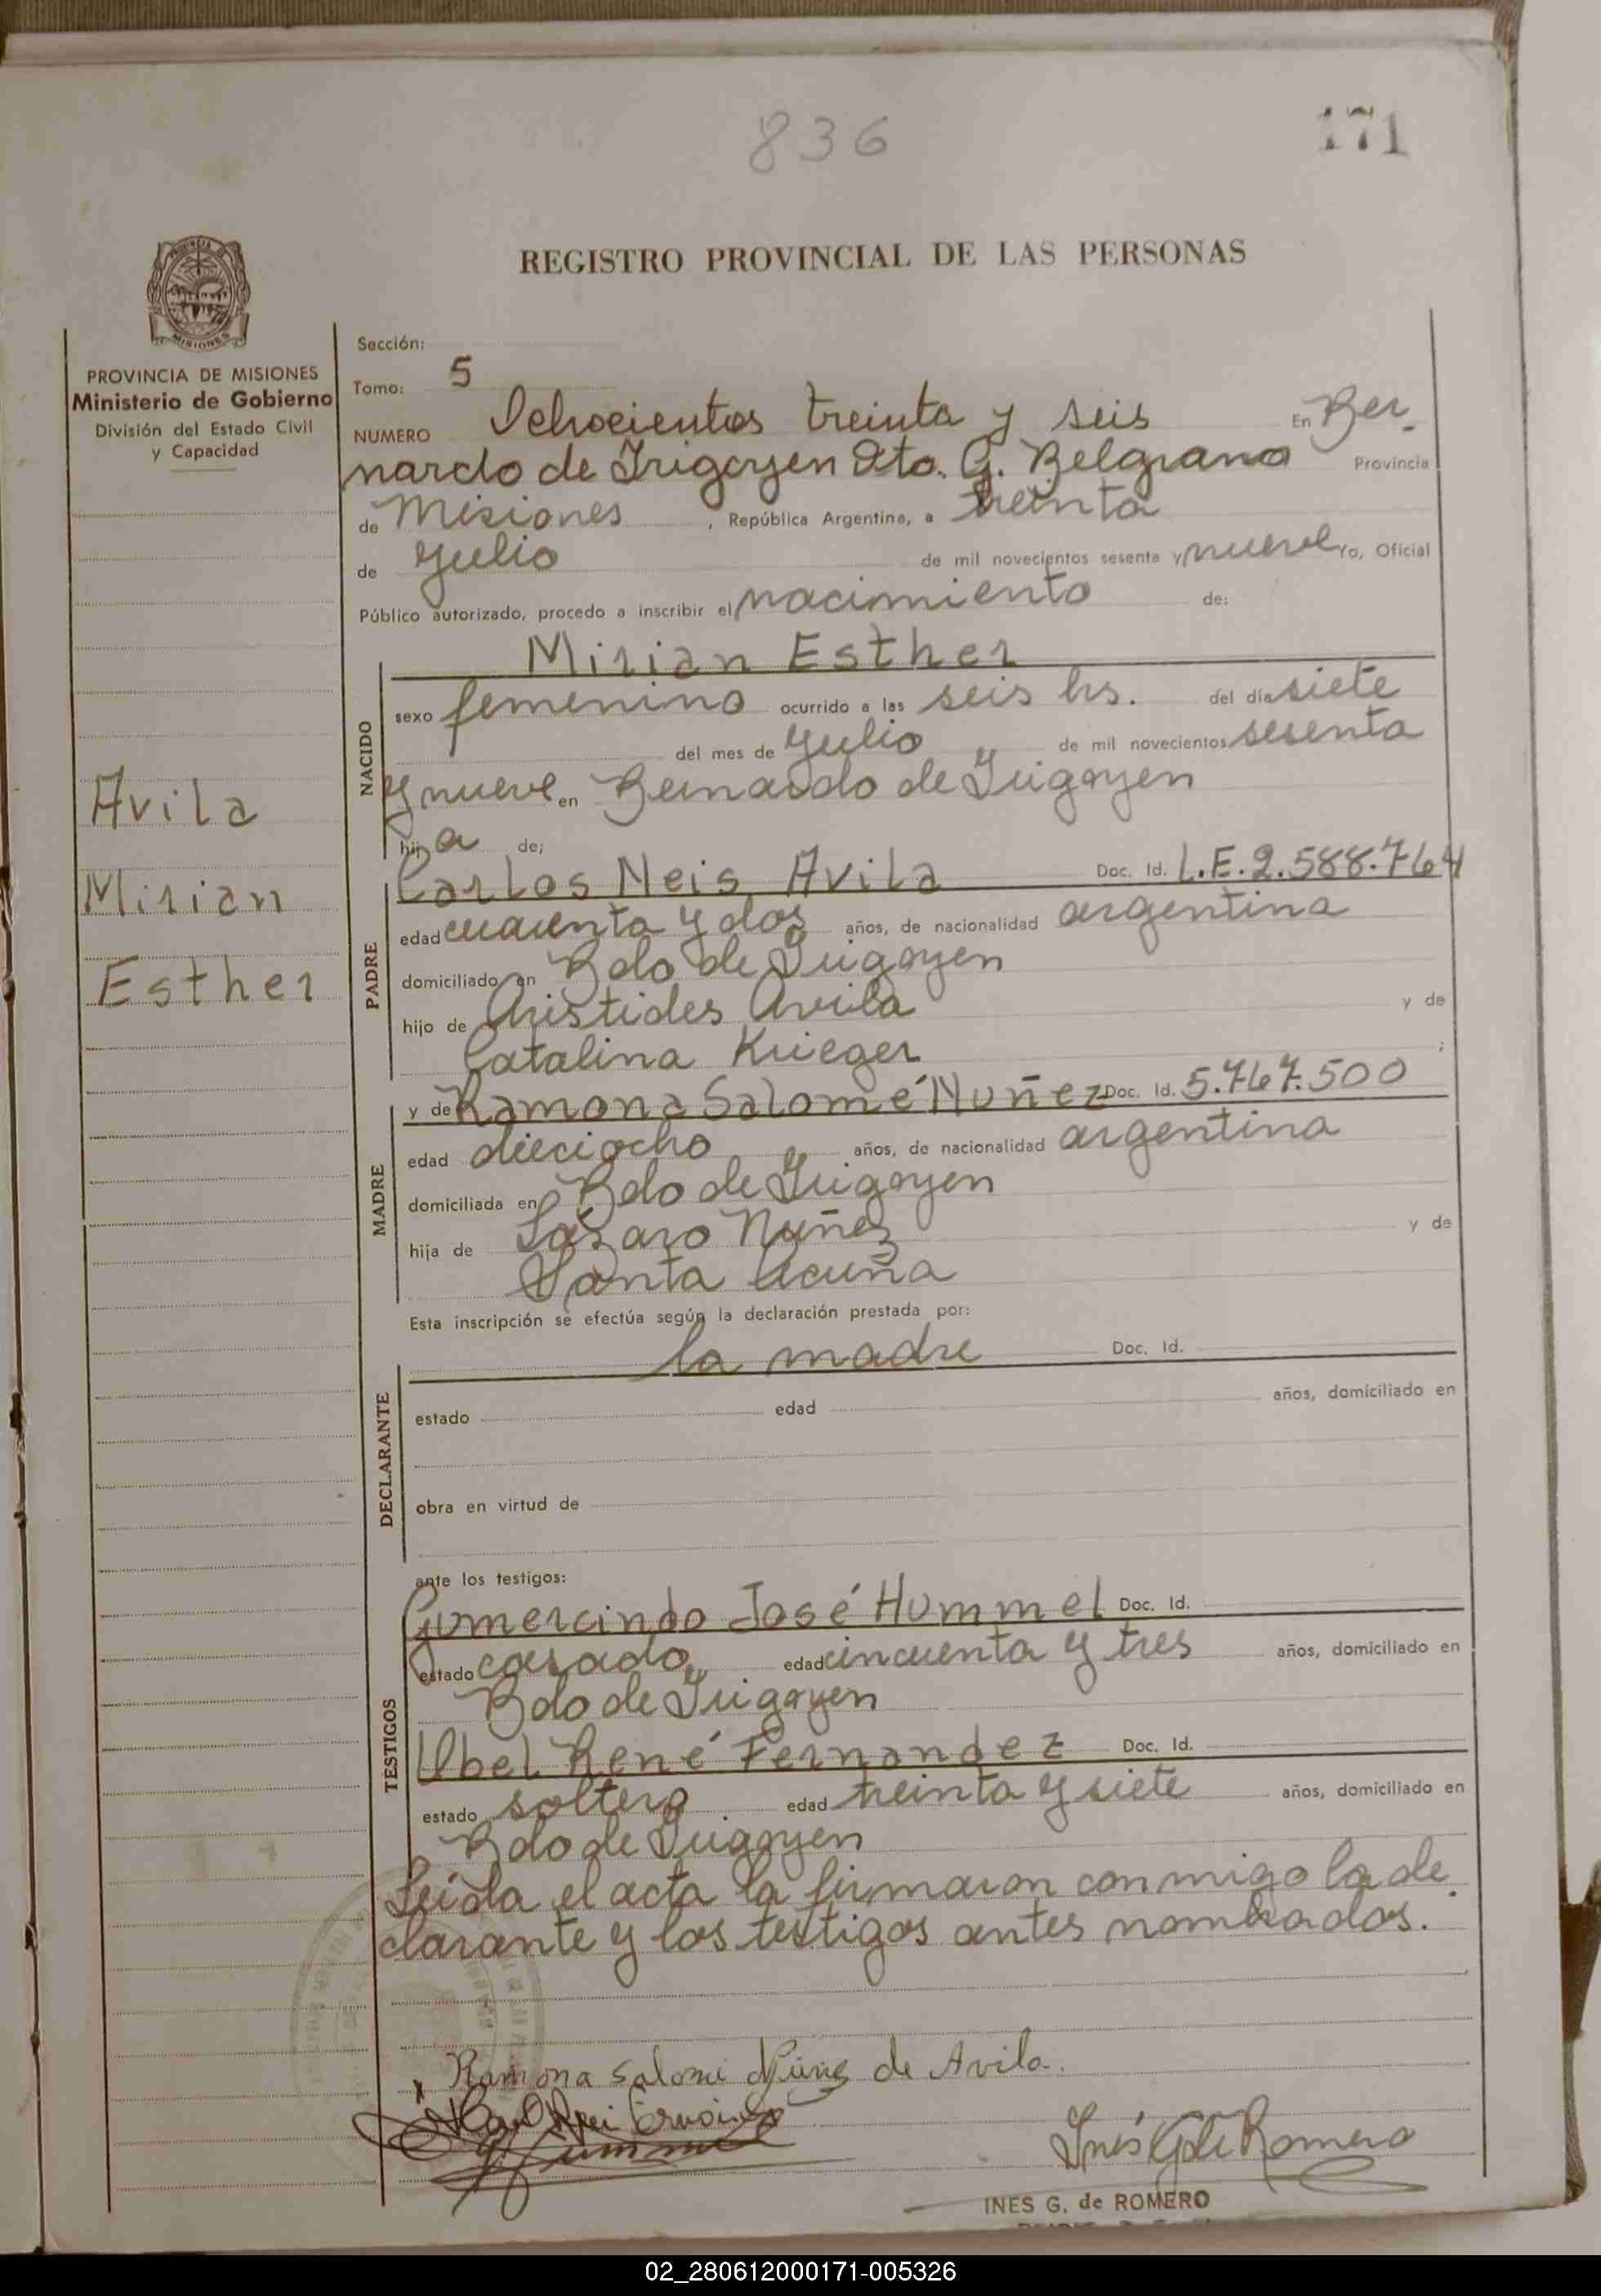 836
171
REGISTRO PROVINCIAL DE LAS PERSONAS
MISIONES
PROVINCIA DE MISIONES
Ministerio de Gobierno
División del Estado Civil
y Capacidad
Avila
Mirian
Esther
Sección:
Tomo: 5
NUMERO Ochocientos treinta y seis En Ber.
nardo de Irigoyen Dto. G. Belgrano Provincia
de Misiones , República Argentina, a treinta
de Julio de mil novecientos sesenta y nueve Yo, Oficial
Público autorizado, procedo a inscribir el nacimiento de:
NACIDO
Mirian Esther
sexo femenino ocurrido a las seis hs. del día siete
del mes de Julio de mil novecientos sesenta
y nueve en Bernardo de Irigoyen
hij a de;
PADRE
Carlos Neis Avila Doc. Id. L.E.2.588.764
edad cuarenta y dos años, de nacionalidad argentina
domiciliado en Bdo de Irigoyen
hijo de Aristides Avila y de
Catalina Krieger ;
MADRE
y de Ramona Salomé Nuñez Doc. Id. 5.767.500
edad dieciocho años, de nacionalidad argentina
domiciliada en Bdo de Irigoyen
hija de Lázaro Nuñez y de
Santa Acuña
Esta inscripción se efectúa según la declaración prestada por:
DECLARANTE
la madre Doc. Id.
estado edad años, domiciliado en
obra en virtud de
ante los testigos:
TESTIGOS
Gumercindo José Hummel Doc. Id.
estado casado edad cincuenta y tres años, domiciliado en
Bdo de Irigoyen
Ubel René Fernandez Doc. Id.
estado soltero edad treinta y siete años, domiciliado en
Bdo de Irigoyen
Leida el acta la firmaron conmigo la de.
clarante y los testigos antes nombrados.
Ramona Salomé Núñez de Avila.
Inés G de Romero
INES G. de ROMERO
02_280612000171-005326